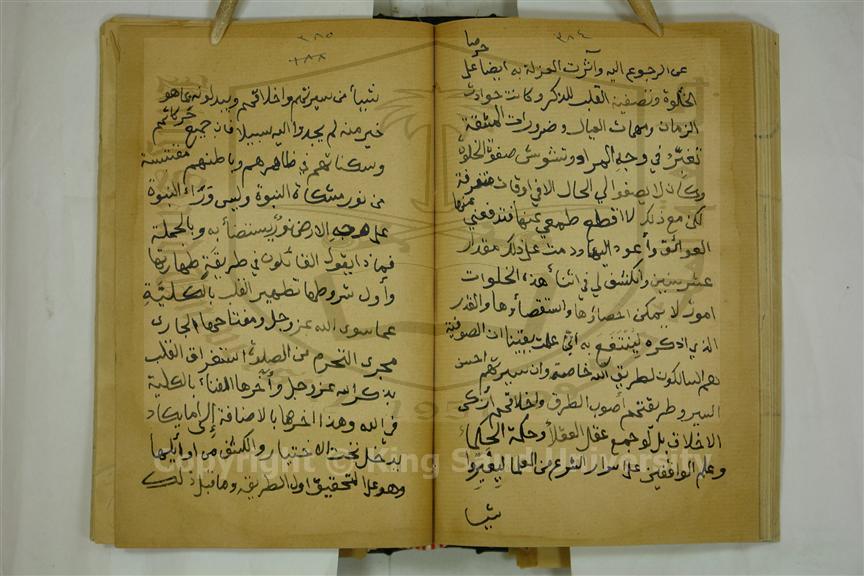 ٣٨٤
حرصا
عن الرجوع اليه وآثرت العزلة به ايضا على
الخلوة وتصفية القلب للذكر وكانت حوادث
الزمان ومهمات العيال وضرورات المشقة
تغبّر في وجه المراد وتشوش صفوة الخلوة
وكان لا يصفو لي الحال الا في اوقات متفرقة
لكن مع ذلك لا اقطع طمعي عنها فتدفعني عنها
العوائق وأعود اليها ودمت على ذلك مقدار
عشر سنين وانكشف لي في اثناء هذه الخلوات
امور لا يمكن احصاءها واستقصاءها والقدر
الذي اذكره لينتفع به أني علمت يقينا ان الصوفية
هم السالكون لطريق الله خاصة وان سيرتهم احسن
السير وطريقتهم أصوب الطرق واخلاقهم ازكى
الاخلاق بل لو جمع عقل العقلاء وحكمة الحكماء
وعلم الواقفين على اسرار الشرع من العلماء ليغيروا
شيئا
٣٨٥
شيئا من سيرتهم واخلاقهم ويبدلونه بما هو
خير منه لم يجدوا اليه سبيلا فان جميع حركاتهم
وسكناتهم في ظاهرهم وباطنهم مقتبسة
من نور مشكاة النبوة وليس وراء النبوة
على وجه الارض نور يستضاء به وبالجملة
فماذا يقول القائلون في طريقة طهارتها
وأول شروطها تطهير القلب بالكلية
عما سوى الله عز وجل ومفتاحها الجاري
مجرى التحرم من الصلاة استغراق القلب
بذكر الله عز وجل وآخرها الفناء بالكلية
في الله وهذا اخرها بالاضافة إلى ما يكاد
يدخل تحت الاختيار والكشف من اوائلها
وهو على التحقيق اول الطريقة وما قبل ذلك
Copyright © King Saud University